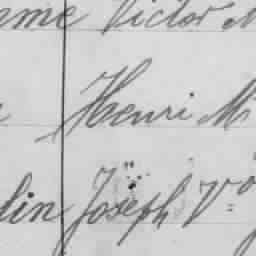 me Victor M
Henri M
lin Joseph V